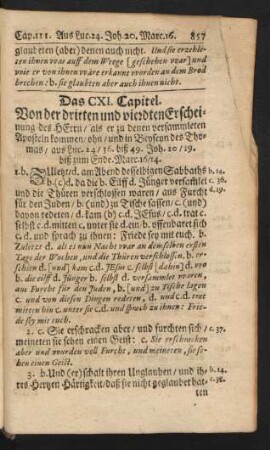 Cap.111. Aus Luc.24. Joh.20. Marc.16. 857
glaubeten (aber) denen auch nicht. Und sie erzehle-
ten ihnen was auff dem Wege (geschehen war) und
wie er von ihnen wäre erkannt worden an dem Brod
brechen: b. sie glaubten aber auch ihnen nicht.
Das CXI. Capitel.
Von der dritten und vierdten Erschei-
nung des HErrn / als er zu denen versammleten
Aposteln kommen / ohn / und in Beyseyn des Tho-
mas / aus Luc. 24 / 36. biß 49. Joh. 20 / 19.
biß zum Ende. Marc. 16 / 14.
1. b. Zuletzt / d. am Abend desselbigen Sabbaths b.14.
b. (c) d. da die b. Eilff d. Jünger versamlet c.36
und die Thüren verschlossen waren / aus Furcht d.19.
für den Jüden / b. (und) zu Tische sassen / c. (und)
davon redeten / d. kam (b) c.d. JEsus / c.d. trat c.
selbst c.d. mitten c. unter sie d. ein b. offenbaret sich
c.d. und sprach zu ihnen: Friede sey mit euch. b.
Zuletzt d. als es nun Nacht war an dem selben ersten
Tage der Wochen, und die Thüren verschlossen, b. er-
schien d. [und] kam c.d. JEsus c. selbst [dahin] d. wo
b. die eilff d. Jünger b. selbst d. versammlet waren,
aus Furcht für den Jüden, b. [und] zu Tische lagen
c. und von diesen Dingen redeten, d. und c.d. trat
mitten hin c. unter sie c.d. und sprach zu ihnen: Frie-
de sey mit euch.
2. c. Sie erschracken aber / und furchten sich / c.37.
meineten sie sehen einen Geist: c. Sie erschracken
aber und wurden voll Furcht, und meineten, sie se-
hen einen Geist.
3. b. Und (er) schalt ihren Unglauben / und ih- b.14.
res Hertzen Härtigkeit / daß sie nicht geglaubet hat- c.38.
ten